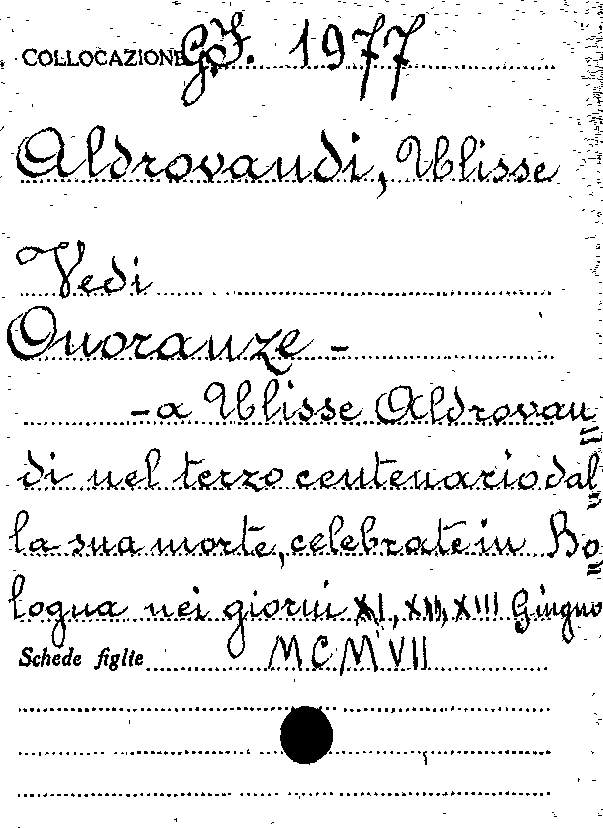 COLLOCAZIONE G.I. 1977
Aldrovandi, Ulisse
Vedi
Onoranze -
- a Ulisse Aldrovan=
di nel terzo centenario dal=
la sua morte, celebrate in Bo=
logna nei giorni XI, XII, XIII Giugno
Schede figlie MCMVII